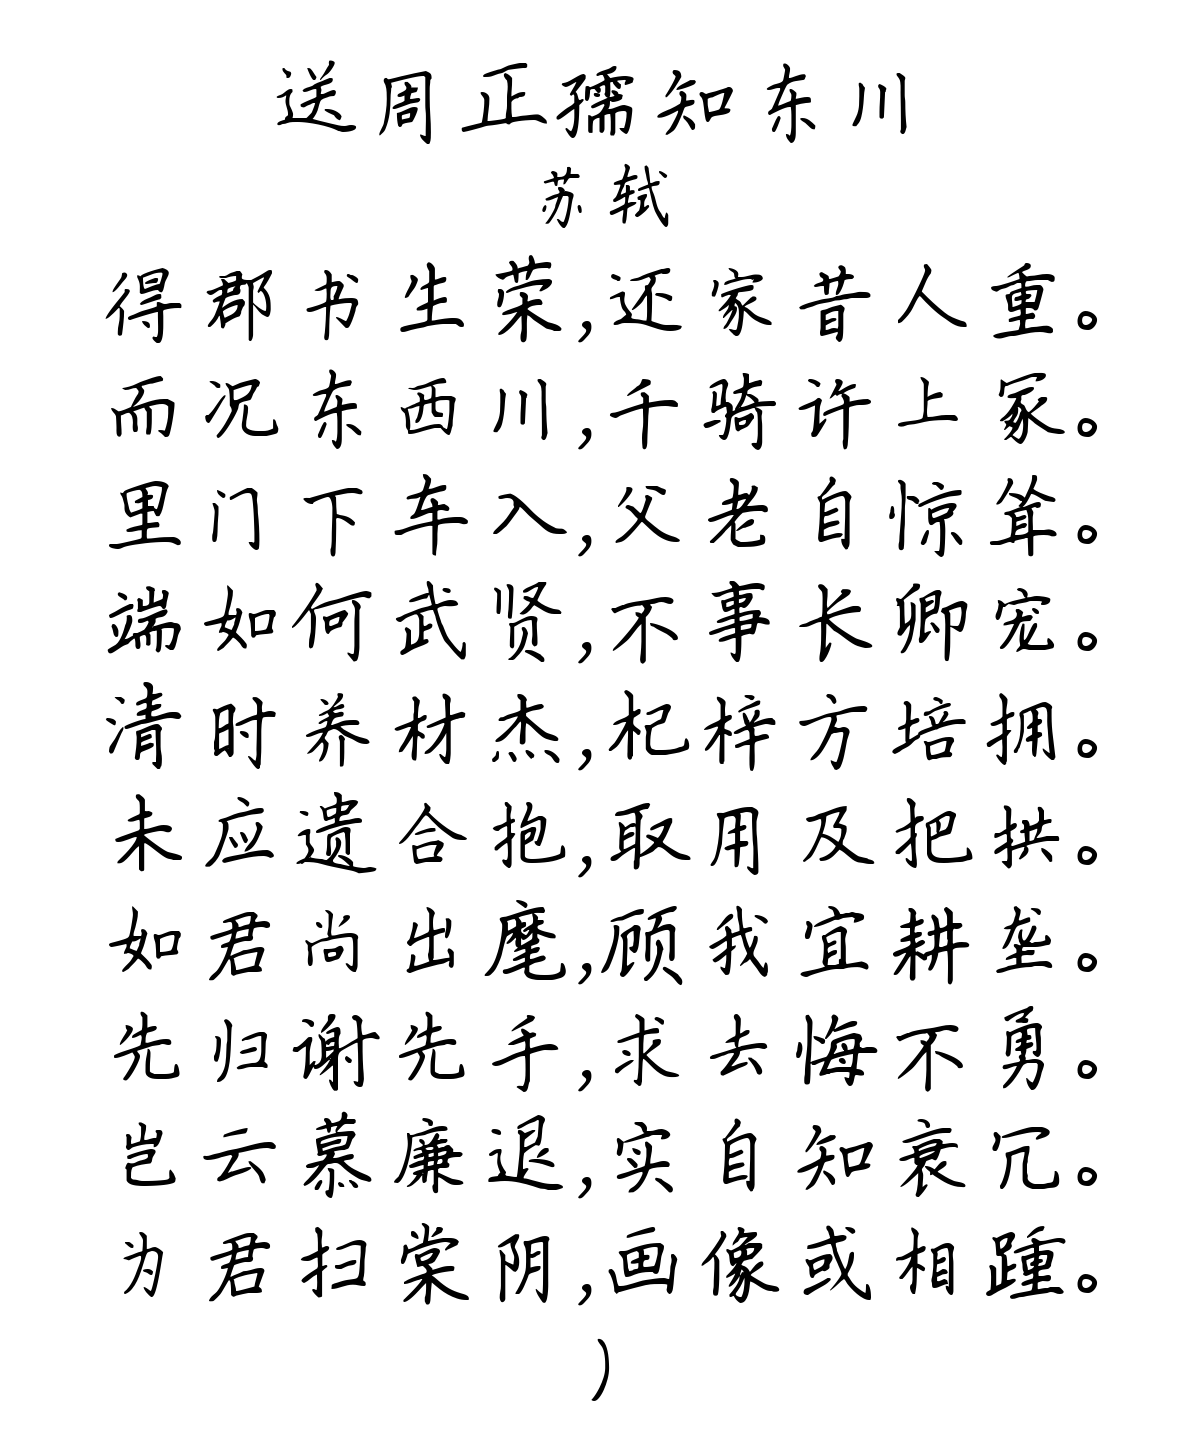 送周正孺知东川
苏轼
得郡书生荣,还家昔人重。
而况东西川,千骑许上冢。
里门下车入,父老自惊耸。
端如何武贤,不事长卿宠。
清时养材杰,杞梓方培拥。
未应遗合抱,取用及把拱。
如君尚出麾,顾我宜耕垄。
先归谢先手,求去悔不勇。
岂云慕廉退,实自知衰冗。
为君扫棠阴,画像或相踵。
)